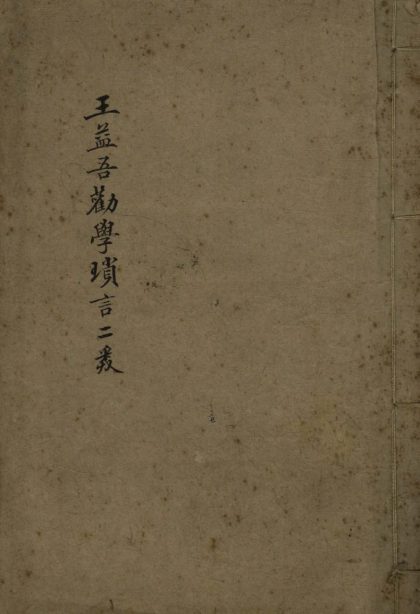 王益吾勸學瑣言二叕